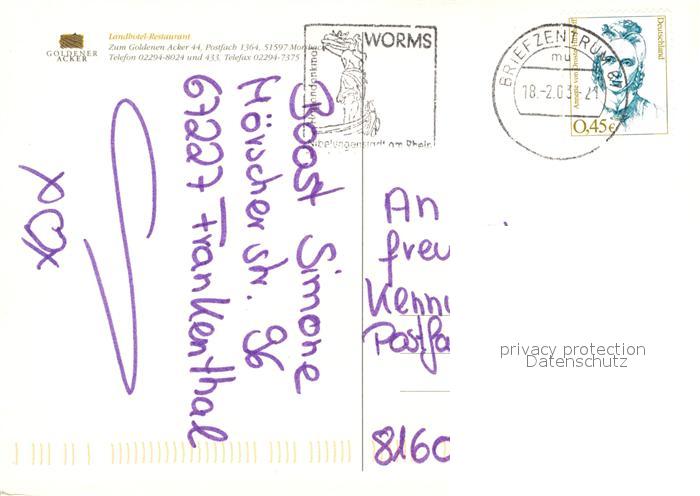 GOLDENER
ACKER
Landhotel-Restaurant
Zum Goldenen Acker 44, Postfach 1364, 51597 Morsbach
Telefon 02294-8024 und 433, Telefax 02294-7375
WORMS
Nibelungenstadt am Rhein
BRIEFZENTRUM
18.-2.03.-21
Deutschland
0,45€
Boost Simone
Hörscher Str. 96
67227 Frankenthal
An
freu
Kenn
Postfa
8160
privacy protection
Datenschutz